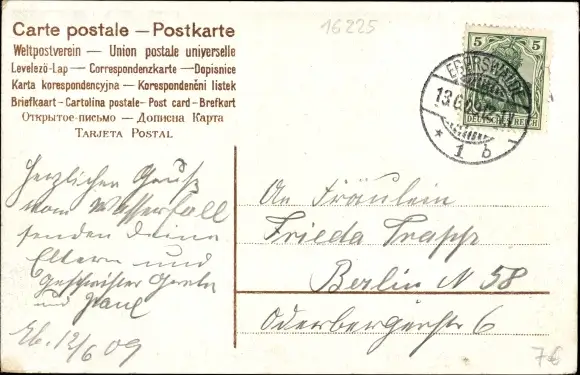 16225
Carte postale — Postkarte
Weltpostverein — Union postale universelle
Levelező-Lap — Correspondenzkarte — Dopisnice
Karta korespondencyjna — Korespondenční listek
Briefkaart - Cartolina postale - Post card - Brefkort
Открытое-письмо — Дописна Карта
TARJETA POSTAL
5 5
DEUTSCHES REICH
EBERSWALDE
13.6.09
* 1 b
Herzlichen Gruß
vom Wasserfall
senden Deine
Eltern und
Geschwister
und
Eb. 12/6 09
An Fräulein
Frieda Trapp
Berlin N 58
Oderbergerstr 6
7€